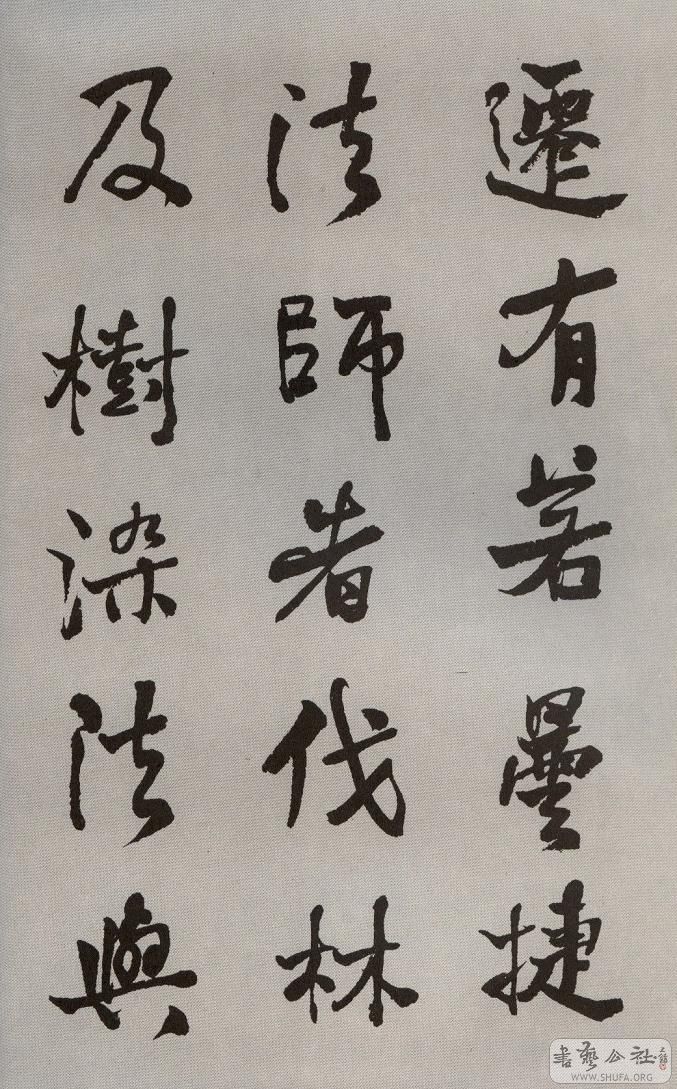 遷有若曇捷
法師者伐林
及樹染法與
書藝公社
WWW.SHUFA.ORG